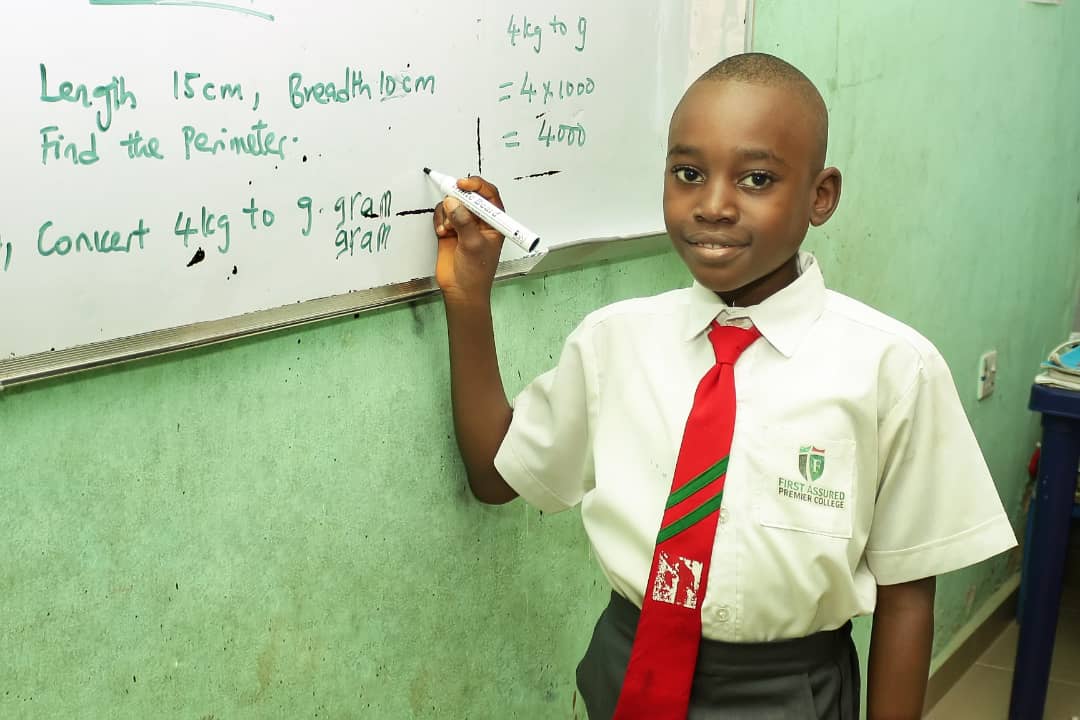 Length 15cm, Breadth 10cm
Find the Perimeter.
, Convert 4kg to g. gram
gram
4kg to g
= 4 x 1000
= 4000
F
FIRST ASSURED
PREMIER COLLEGE